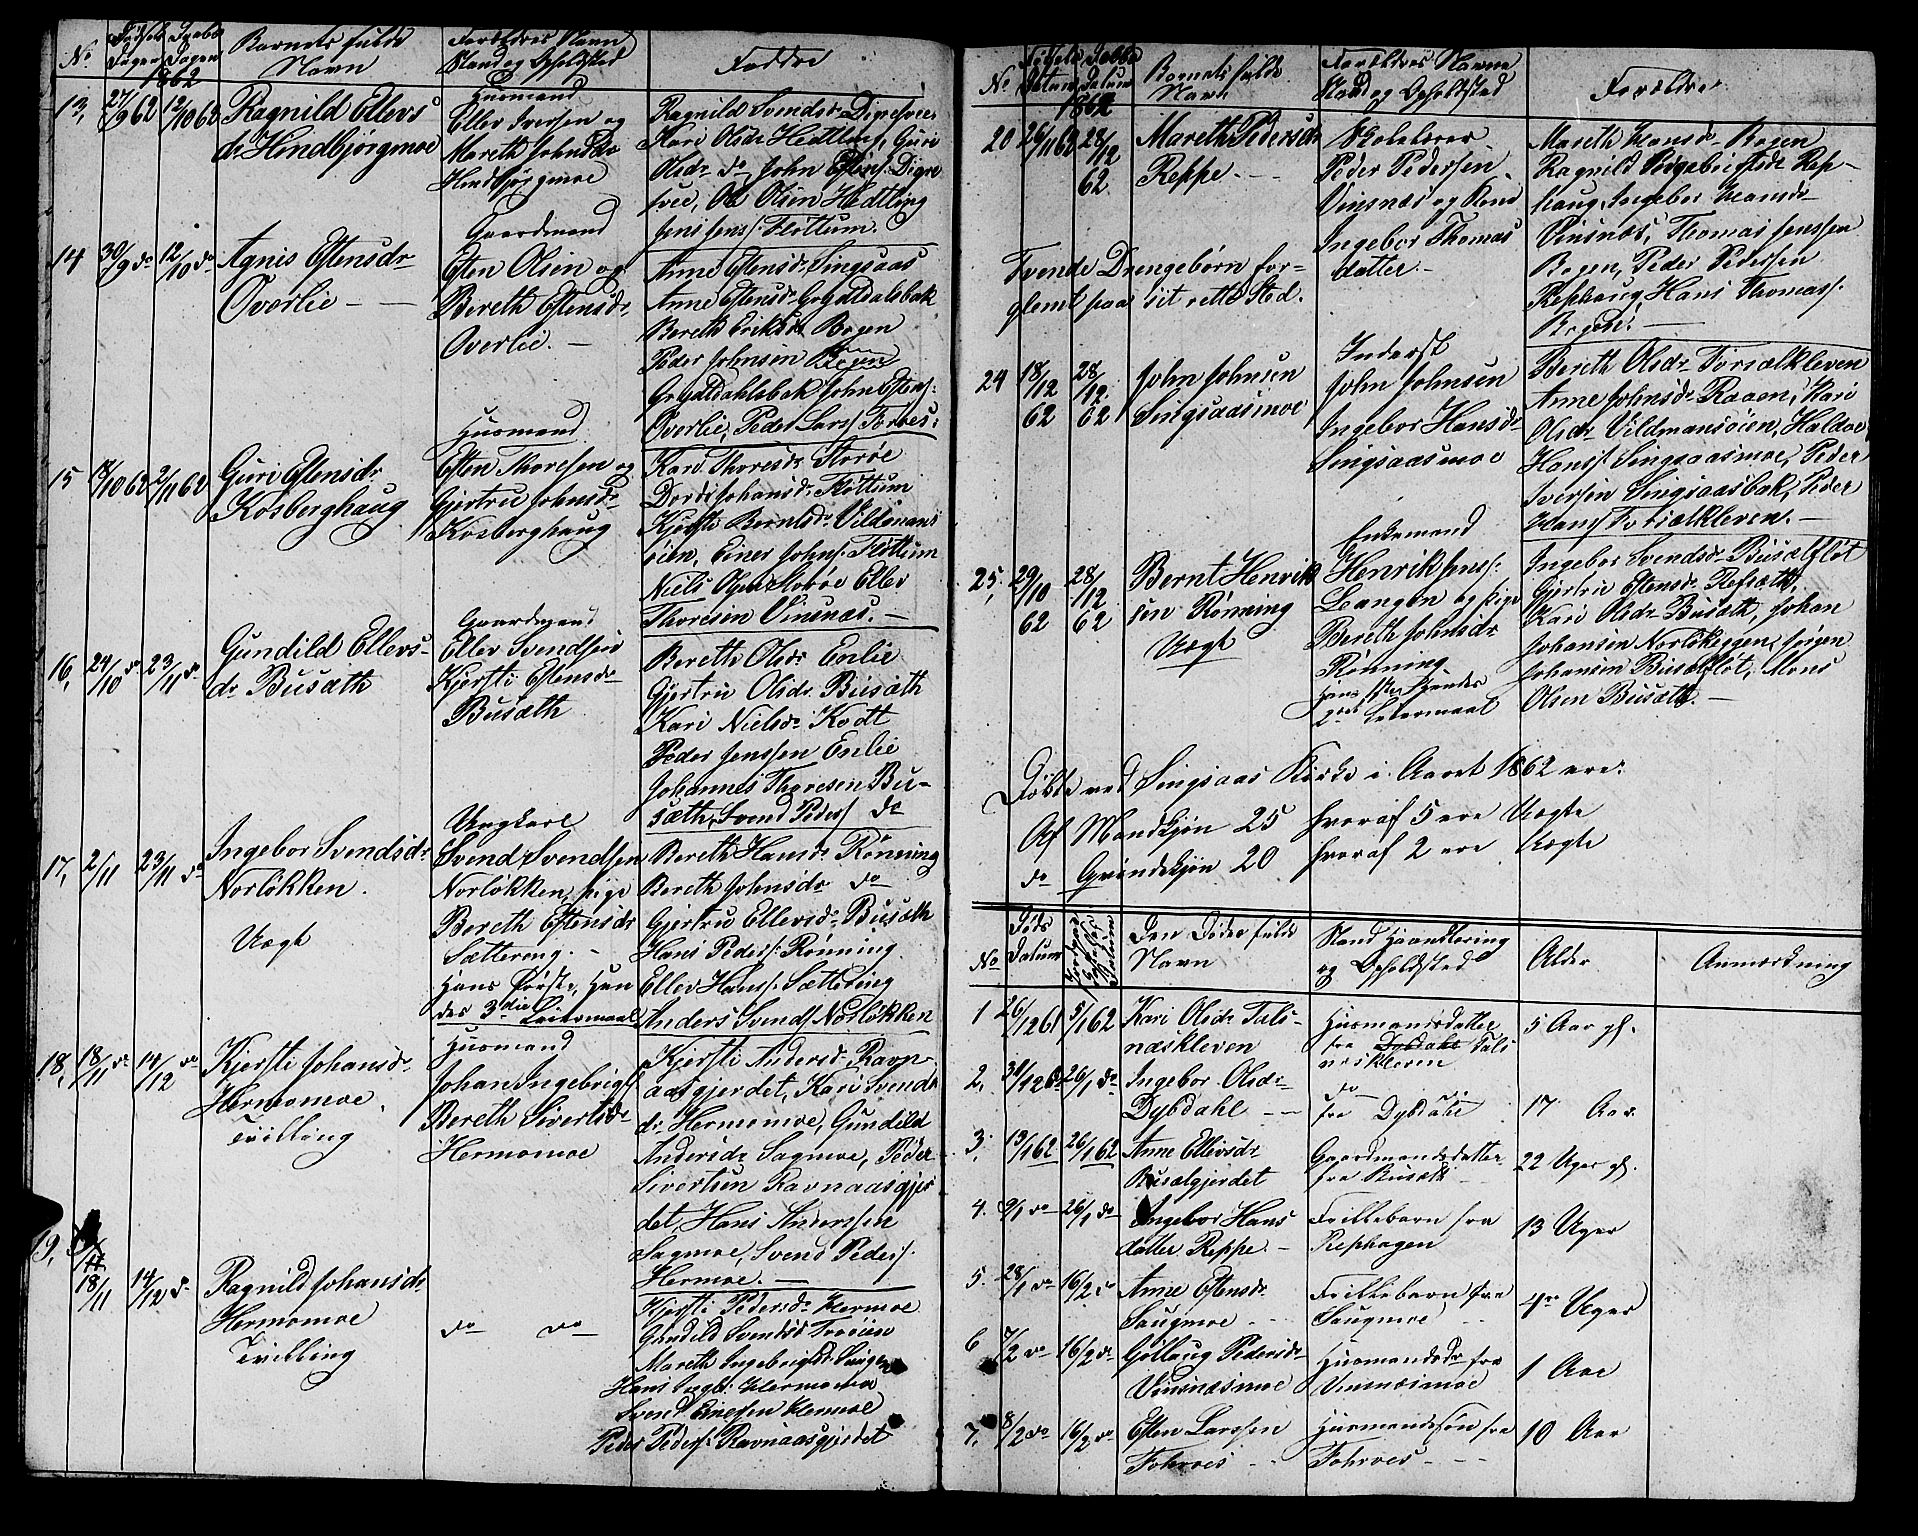 No. Fødsels Dagen Daabs Dagen Barnets fulde Navn Forældres Navn Stand og Opholdssted Faddre
1862
13, 27/9 62 12/10 62 Ragnild Ellevs
dr Hindbjørgmoe
Huusmand
Ellev Iversen og
Mareth Johnsdr
Hindbjørgmoe
Ragnild Svendsdr Digresvee
Kari Olsdr Hedtling, Guri
Olsdr do, John Estens. Digre
svee, Ole Olsen Hedtling
Jens Jens. Fløttum.
14 30/9 do 12/10 do Agnis Estensdr
Overlie
Gaardmand
Esten Olsen og
Bereth Estensdr
Overlie.
Anne Estensdr Singsaas
Anne Estensdr Grytdalsbak
Bereth Eriksdr Bogen
Peder Johnsen
Grytdahlsbak John Estens.
Overlie, Peder Lars. Forves.
15 18/10 62 2/11 62 Guri Estensdr
Kosberghaug
Huusmand
Esten Thoresen og
Gjertru Johnsdr
Kosberghaug
Kari Thoresdr Storøe
Dordi Johansdr Fløttum
Kjersti Berntsdr Vildmans
øien, Einer Johns. Fløttum
Niels Olsen Storøe Ellev
Thoresen Vinsnæs.
16, 24/10 do 23/11 do Gundild Ellevs-
dr Busæth
Gaardmand
Ellev Svendsen
Kjersti Estensdr
Busæth
Bereth Olsdr Enlie
Gjertru Olsdr Busæth
Kari Nielsdr Kodt
Peder Jenssen Enlie
Johannes Thoresen Bu-
sæth, Svend Peders. do
17, 2/11 23/11 do Ingebor Svendsdr
Norløkken.
Uægt
Ungkarl
Svend Svendsen
Norløkken, Pige
Bereth Estensdr
Sættereng.
Hans Første, Hen
des 3die Leiermaal
Bereth Hansdr Rønning
Bereth Johnsdr do
Gjertru Ellevsdr Busæth
Hans Peders. Rønning
Ellev Hans. Sættering
Anders Svends. Norløkken
18, 18/11 do 14/12 do Kjersti Johansdr
Hermomoe.
Tvilling
Huusmand
Johan Ingebrigts.
Bereth Sivertsdr
Hermomoe
Kjersti Andersdr Ravn-
aasgjerdet, Kari Svends
dr Hermomoe, Gundild
Andersdr Sagmoe, Peder
Sivertsen Ravnaasgjer
det, Hans Anderssen
Sagmoe, Svend Peders.
Hermoe.
19, 18/11 14/12 do Ragnild Johansdr
Hermomoe
Tvilling
do do
Kjersti Pedersdr Hermoe
Gundild Svendsd Troøien
Mareth Ingebrigtsdr
Hans Ingb. Hermomoe
Svend Einersen Hermoe
Peder Peders. Ravnaasgjerdet
No Fødsels Datum Døbte Datum Barnets fulde Navn Forældres Navne Stand og Opholdsted Forældre
1862
20 26/11 62 28/12 62 Mareth Pedersdr
Reppe.
Skolelærer
Peder Pedersen
Vinsnæs og Kone
Ingebor Thomas
datter.
Mareth Hansdr Bogen
Ragnild Ingebrigtsdr Rep-
haug, Ingebor Hansdr
Vinsnæs, Thomas Jenssen
Bogen, Peder Pedersen
Rephaug, Hans Thomas.
Bogen.
Tvende Drengebørn for-
glemt paa sit rette Sted.
24 18/12 62 28/12 62 John Johnsen
Singsaasmoe
Inderst
John Johnsen
Ingebor Hansdr
Singsaasmoe
Bereth Olsdr Forsælkleven
Anne Johnsdr Raaen, Kari
Olsdr Vildmansøien, Haldoe
Hans. Singsaasmoe, Peder
Iversen Singsaasbak, Peder
Hans. Forsælkleven.
25, 29/10 62 28/12 62 Bernt Henrik
sen Rønning
Uægt
Enkemand
Henrik Jens.
Langen og Pige
Bereth Johnsdr
Rønning
Hans 1ste Hendes
2det Leiermaal
Ingebor Svendsdr Busætfløt
Gjertru Estensdr Refsæth,
Kari Olsdr Busæth, Johan
Johansen Norløkeggen, Jørgen
Johansen Busætfløt, Mons
Olsen Busæth.
Døbte ved Singsaas Kirke i Aaret 1862 ere:
Af Mandkjøn 25 hvoraf 5 ere Uægte
do Qvindekjøn 20 hvoraf 2 ere Uægte
No Døds Datum Den Dødes fulde Navn Stand Haandtering og Opholdsted Alder Anmærkning
1 26/12 61 5/1 62 Kari Olsdr Tals-
næskleven
Huusmandsdatter
fra Dybdahl Tals
næskleven
5 Aar gl.
2, 31/12 61 26/1 do Ingebor Olsdr
Dybdahl
do
fra Dybdahl
17 Aar
3, 13/1 62 26/1 62 Anne Ellevsdr
Busætgjerdet
Gaardmandsdatter
fra Busæth
22 Uger gl.
4. 9/1 do 26/1 do Ingebor Hans
datter Reppe.
Frillebarn fra
Rephagen
13 Uger
5. 28/1 do 16/2 do Anne Estensdr
Saugmoe
Frillebarn fra
Saugmoe
4re Uger
6 7/2 do 16/2 do Gollaug Pedersdr
Vinsnæsmoe
Huusmandsdr fra
Vinsnæsmoe
1 Aar
7, 8/2 do 16/2 do Esten Larssen
Fohrves
Huusmandssøn fra
Fohrves
10 Aar